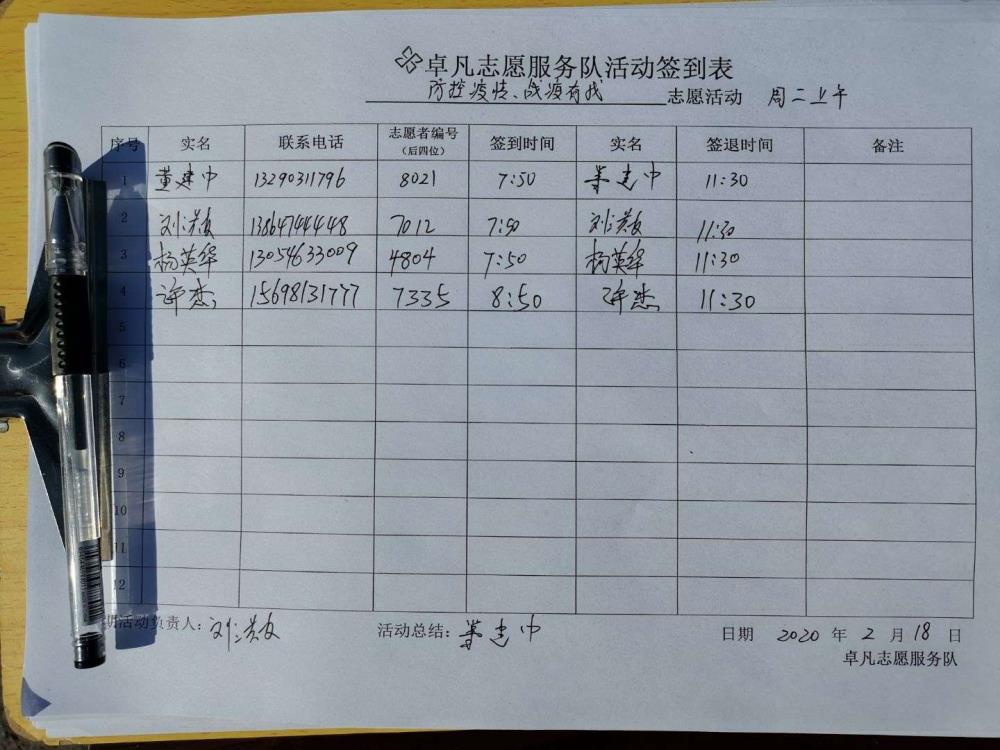 卓凡志愿服务队活动签到表
防控疫情、战疫有我 志愿活动 周二上午
序号 实名 联系电话 志愿者编号（后四位） 签到时间 实名 签退时间 备注
1 董建中 13290311796 8021 7:50 董建中 11:30
2 刘洪友 13864744448 7012 7:50 刘洪友 11:30
3 杨英华 13054633009 4804 7:50 杨英华 11:30
4 许杰 15698131777 7335 8:50 许杰 11:30
5
6
7
8
9
10
11
12
期活动负责人：刘洪友 活动总结：董建中 日期 2020 年 2 月 18 日
卓凡志愿服务队